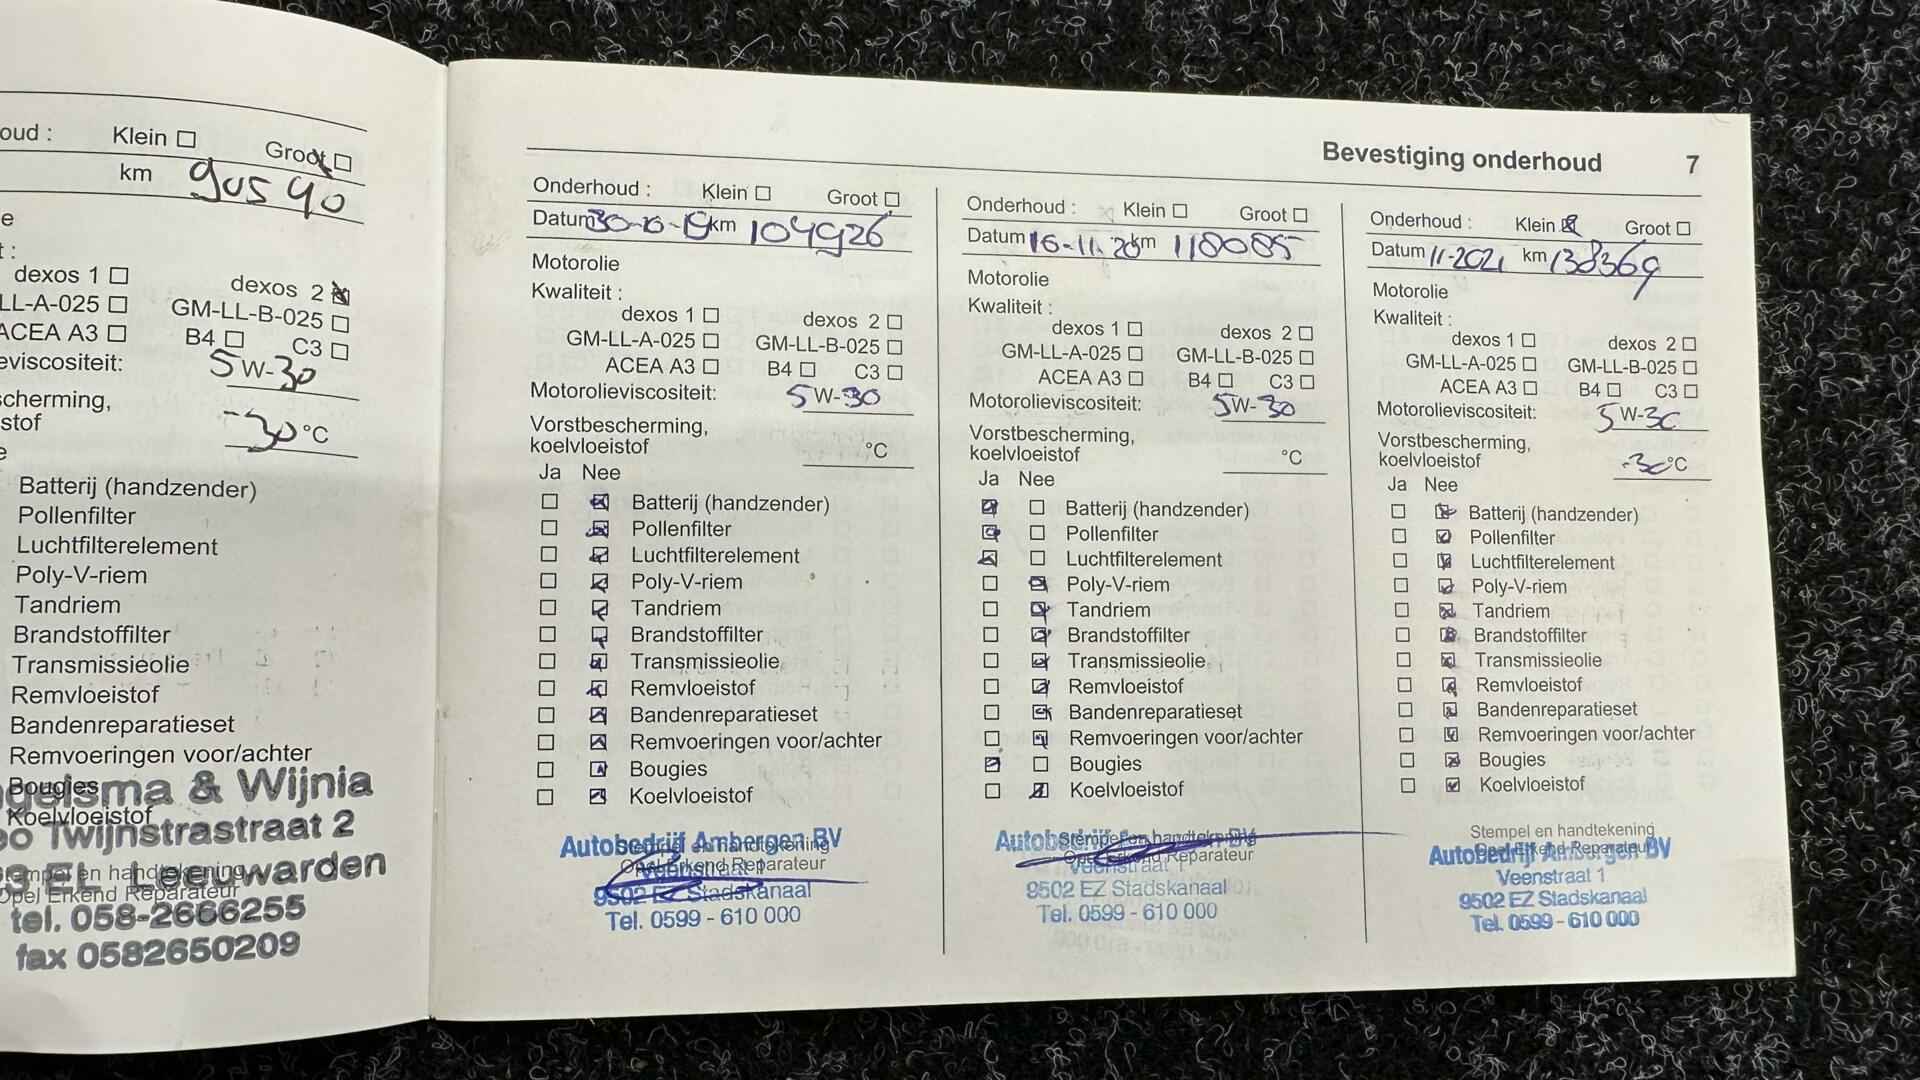 oud : Klein Groot
km 90590
e
t :
dexos 1 dexos 2
LL-A-025 GM-LL-B-025
ACEA A3 B4 C3
eviscositeit: 5W-30
scherming,
stof -30 °C
e
Batterij (handzender)
Pollenfilter
Luchtfilterelement
Poly-V-riem
Tandriem
Brandstoffilter
Transmissieolie
Remvloeistof
Bandenreparatieset
Remvoeringen voor/achter
Bougies
Koelvloeistof
gelsma & Wijnia
eo Twijnstrastraat 2
tempel en handtekening
3 EL Leeuwarden
Opel Erkend Reparateur
tel. 058-2666255
fax 0582650209
Bevestiging onderhoud 7
Onderhoud : Klein Groot
Datum 30-10-19 km 104926
Motorolie
Kwaliteit :
dexos 1 dexos 2
GM-LL-A-025 GM-LL-B-025
ACEA A3 B4 C3
Motorolieviscositeit: 5W-30
Vorstbescherming,
koelvloeistof °C
Ja Nee
Batterij (handzender)
Pollenfilter
Luchtfilterelement
Poly-V-riem
Tandriem
Brandstoffilter
Transmissieolie
Remvloeistof
Bandenreparatieset
Remvoeringen voor/achter
Bougies
Koelvloeistof
Stempel en handtekening
Opel Erkend Reparateur
Autobedrijf Ambergen BV
Veenstraat 1
9502 EZ Stadskanaal
Tel. 0599 - 610 000
Onderhoud : Klein Groot
Datum 16-11-20 km 118085
Motorolie
Kwaliteit :
dexos 1 dexos 2
GM-LL-A-025 GM-LL-B-025
ACEA A3 B4 C3
Motorolieviscositeit: 5W-30
Vorstbescherming,
koelvloeistof °C
Ja Nee
Batterij (handzender)
Pollenfilter
Luchtfilterelement
Poly-V-riem
Tandriem
Brandstoffilter
Transmissieolie
Remvloeistof
Bandenreparatieset
Remvoeringen voor/achter
Bougies
Koelvloeistof
Stempel en handtekening
Opel Erkend Reparateur
Autobedrijf BV
Veenstraat 1
9502 EZ Stadskanaal
Tel. 0599 - 610 000
Onderhoud : Klein Groot
Datum 11-2021 km 138369
Motorolie
Kwaliteit :
dexos 1 dexos 2
GM-LL-A-025 GM-LL-B-025
ACEA A3 B4 C3
Motorolieviscositeit: 5W-30
Vorstbescherming,
koelvloeistof -30°C
Ja Nee
Batterij (handzender)
Pollenfilter
Luchtfilterelement
Poly-V-riem
Tandriem
Brandstoffilter
Transmissieolie
Remvloeistof
Bandenreparatieset
Remvoeringen voor/achter
Bougies
Koelvloeistof
Stempel en handtekening
Opel Erkend Reparateur
Autobedrijf Ambergen BV
Veenstraat 1
9502 EZ Stadskanaal
Tel. 0599 - 610 000